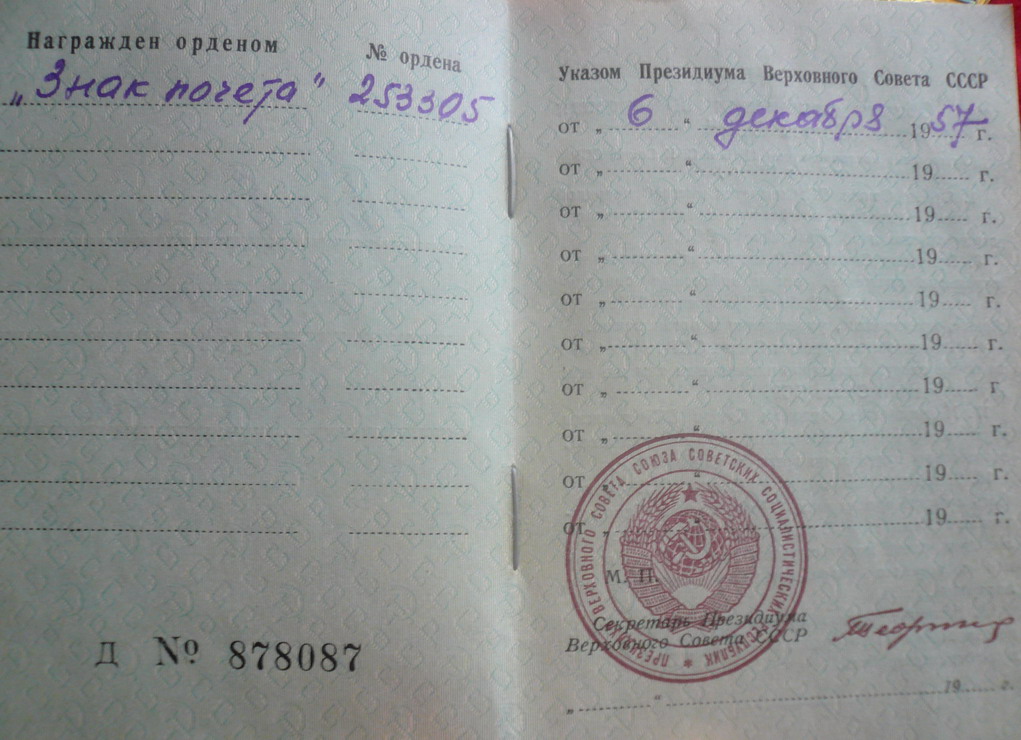 Награжден орденом
№ ордена
„Знак почета“ 253305
Д № 878087
Указом Президиума Верховного Совета СССР
от „ 6 “ декабря 1957 г.
от „ “ 19 г.
от „ “ 19 г.
от „ “ 19 г.
от „ “ 19 г.
от „ “ 19 г.
от „ “ 19 г
от „ “ 19 г.
от „ “ 19 г.
от „ “ 19 г.
ПРЕЗИДИУМ ВЕРХОВНОГО СОВЕТА СОЮЗА СОВЕТСКИХ СОЦИАЛИСТИЧЕСКИХ РЕСПУБЛИК
М. П.
Секретарь Президиума
Верховного Совета СССР
„ “ 19 г.